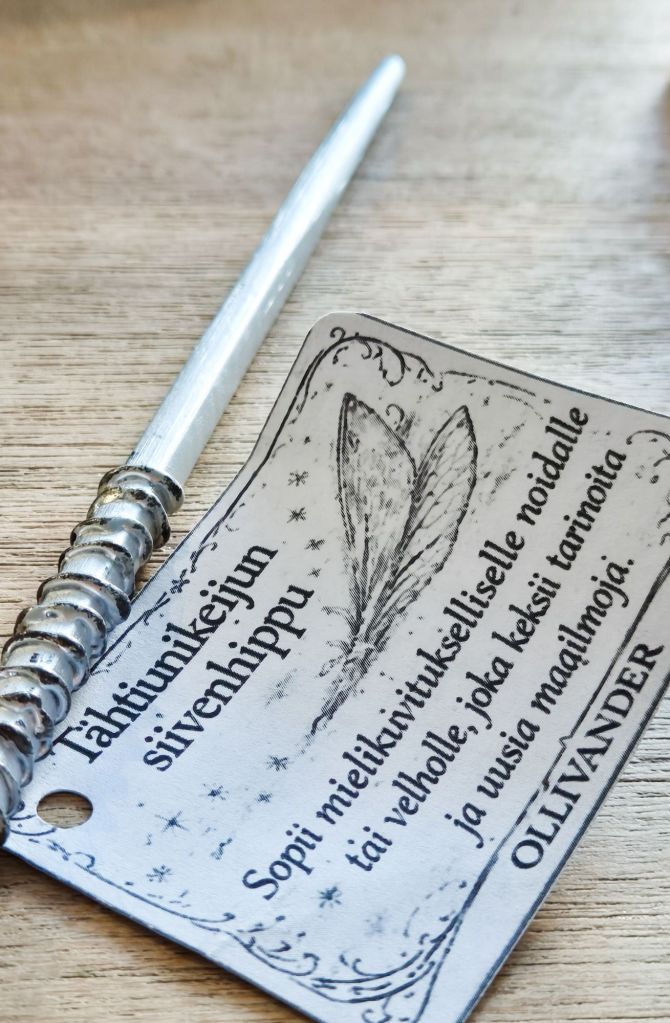 Tähtiunikeijun
siivenhippu
Sopii mielikuvitukselliselle noidalle
tai velholle, joka keksii tarinoita
ja uusia maailmoja.
OLLIVANDER